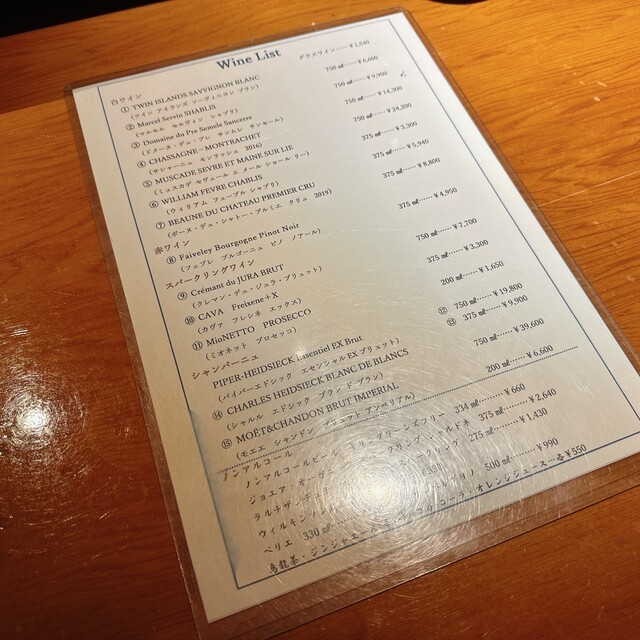 Wine List
白ワイン グラスワイン……¥1,540
① TWIN ISLANDS SAVVIGNON BLANC 750㎖……¥6,600
(ツイン アイランズ ソーヴィニヨン ブラン)
② Marcel Servin SHABLIS 750㎖……¥9,900
(マルセル セルヴィン シャブリ)
③ Domaine du Pre Semele Sancerre 750㎖……¥14,300
(ドメーヌ・デュ・プレ セメレ サンセール)
④ CHASSAGNE-MONTRACHET 750㎖……¥24,200
(サシャーニュ モンラッシェ 2016)
⑤ MUSCADE SEVRE ET MAINE SUR LIE 375㎖……¥3,300
(ミュスカデ セヴェール エ メーヌ シュール リー)
⑥ WILLIAM FEVRE CHABLIS 375㎖……¥5,940
(ウィリアム フェーブル シャブリ)
⑦ BEAUNE DU CHATEAU PREMIER CRU 375㎖……¥8,800
(ボーヌ・デュ・シャトー・プルミエ クリュ 2019)
赤ワイン
⑧ Faiveley Bourgogne Pinot Noir 375㎖……¥4,950
(フェブレ ブルゴーニュ ピノ ノアール)
スパークリングワイン
⑨ Crémant du JURA BRUT 750㎖……¥7,700
(クレマン・デュ・ジュラ・ブリュット)
⑩ CAVA Freixene+X 375㎖……¥3,300
(カヴァ フレシネ エックス)
⑪ MioNETTO PROSECCO 200㎖……¥1,650
(ミオネット プロセッコ)
シャンパーニュ
PIPER-HEIDSIECK Essentiel EX Brut ⑫ 750㎖……¥19,800
(パイパーエドシック エセンシャルEXブリュット) ⑬ 375㎖……¥9,900
⑭ CHARLES HEIDSIECK BLANC DE BLANCS 750㎖……¥39,600
(シャルル エドシック ブラン ド ブラン)
⑮ MOËT&CHANDON BRUT IMPERIAL 200㎖……¥6,600
(モエエ シャンドン ブリュット アンペリアル)
ノンアルコール
ノンアルコールビール フリー 334㎖……¥660
ジョエア・オーガニック 375㎖……¥2,640
ラルチザ 275㎖……¥1,430
ウィルキンソン
ペリエ 330㎖ 500㎖……¥990
烏龍茶・ジンジャエール コーラ・オレンジジュース…各¥550